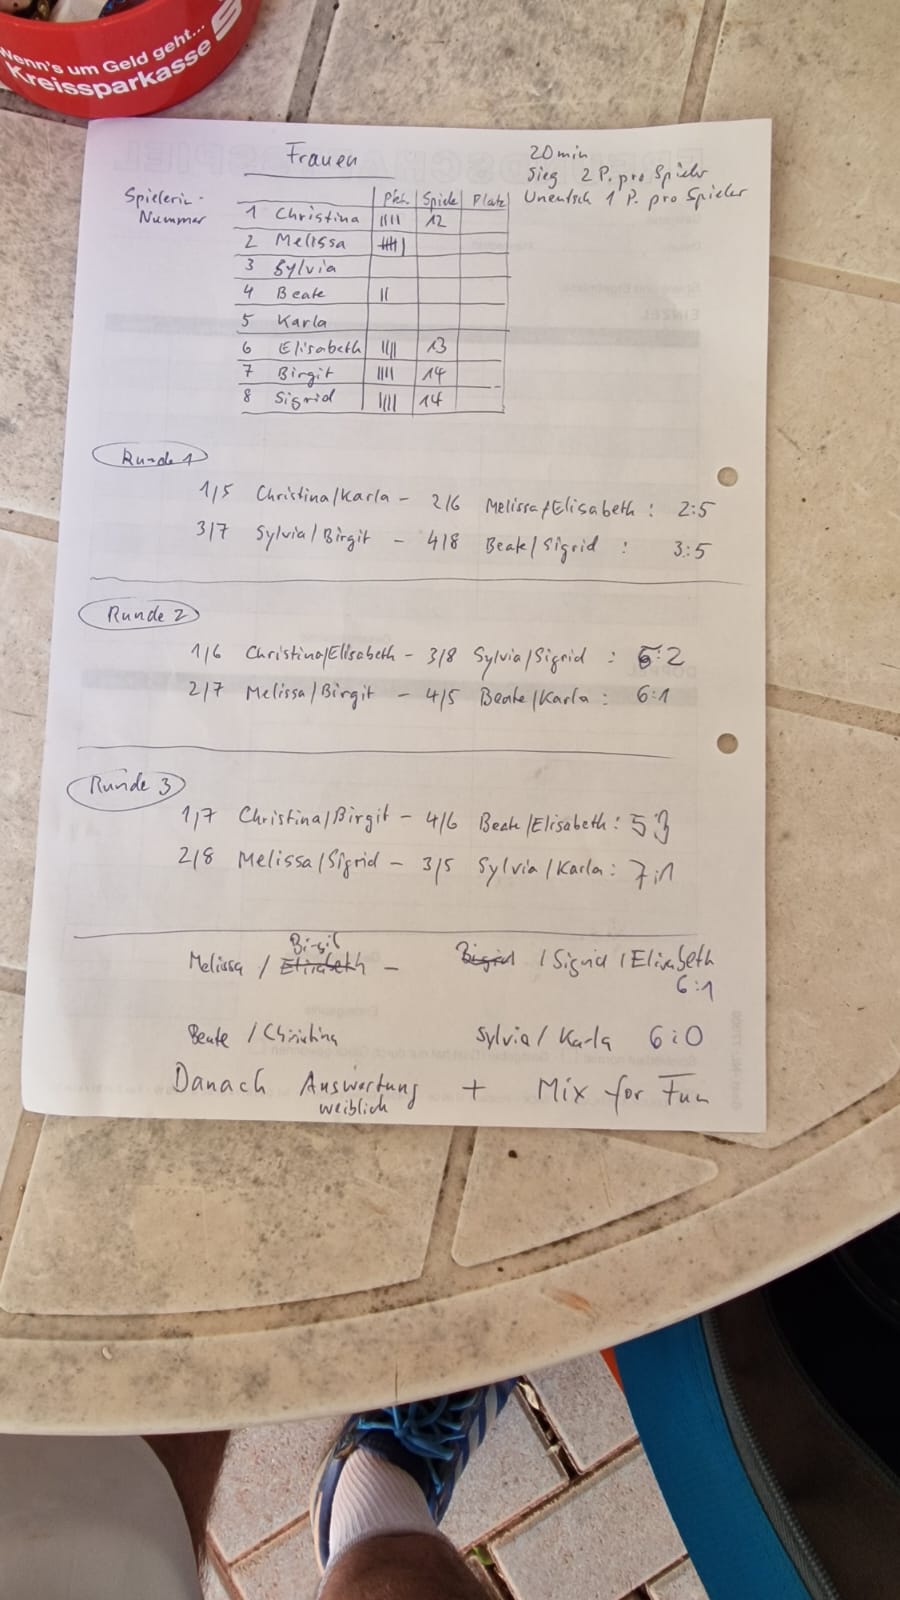 Wenn's um Geld geht...
Kreissparkasse
Frauen
20 min
Sieg 2 P. pro Spieler
Unentsch 1 P. pro Spieler
Spielerin-
Nummer
Pkte Spiele Platz
1 Christina |||| 12
2 Melissa 卌|
3 Sylvia
4 Beate ||
5 Karla
6 Elisabeth |||| 13
7 Birgit |||| 14
8 Sigrid |||| 14
EINZEL
Runde 1
1/5 Christina/Karla - 2/6 Melissa/Elisabeth : 2:5
3/7 Sylvia/Birgit - 4/8 Beate/Sigrid : 3:5
Runde 2
1/6 Christina/Elisabeth - 3/8 Sylvia/Sigrid : 6:2
2/7 Melissa/Birgit - 4/5 Beate/Karla : 6:1
Runde 3
1/7 Christina/Birgit - 4/6 Beate/Elisabeth : 5:3
2/8 Melissa/Sigrid - 3/5 Sylvia/Karla : 7:1
Birgit
Melissa / Elisabeth - / Sigrid / Elisabeth
6:1
Beate / Christina Sylvia / Karla 6:0
Danach Auswertung + Mix for Fun
weiblich